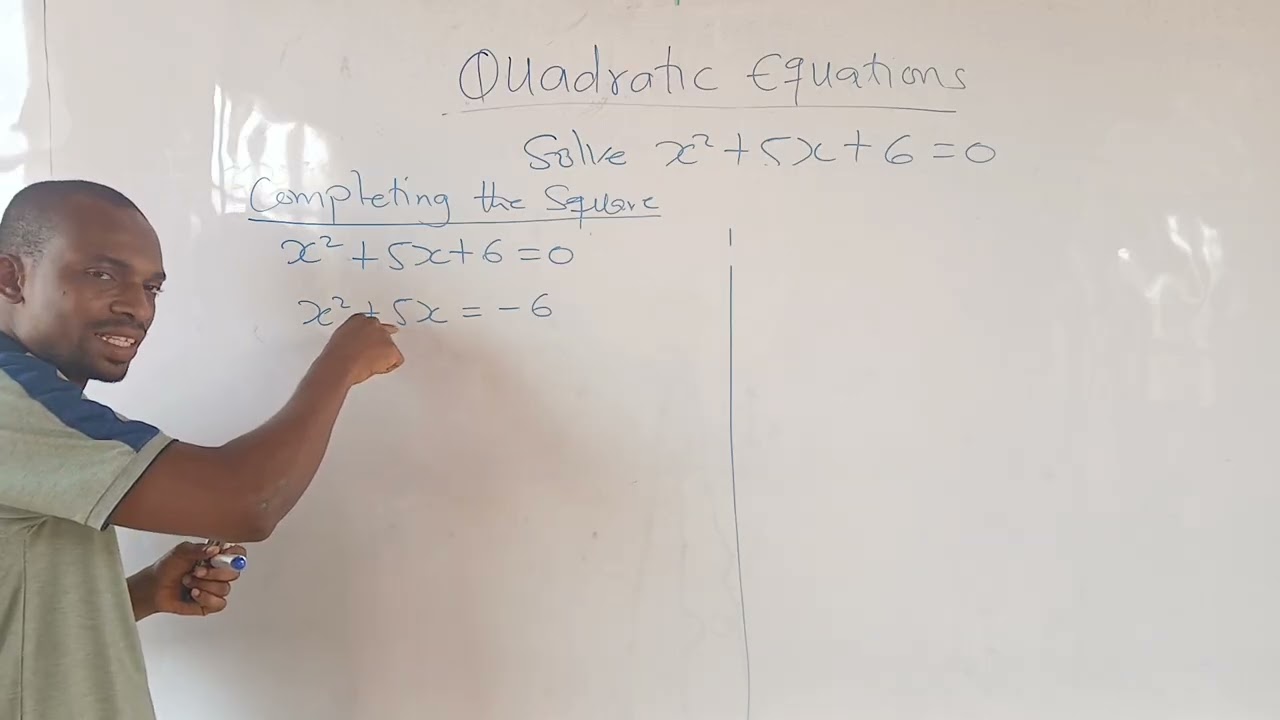 Quadratic Equations
Solve x² + 5x + 6 = 0
Completing the Square
x² + 5x + 6 = 0
x² + 5x = - 6